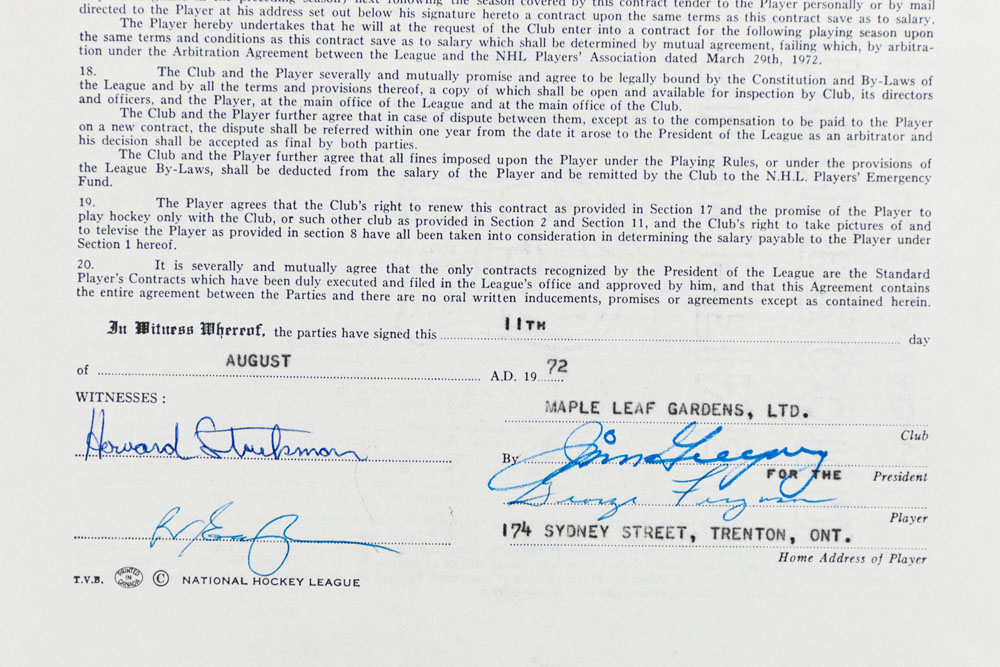 directed to the Player at his address set out below his signature hereto a contract upon the same terms as this contract save as to salary.
The Player hereby undertakes that he will at the request of the Club enter into a contract for the following playing season upon
the same terms and conditions as this contract save as to salary which shall be determined by mutual agreement, failing which, by arbitra-
tion under the Arbitration Agreement between the League and the NHL Players' Association dated March 29th, 1972.
18. The Club and the Player severally and mutually promise and agree to be legally bound by the Constitution and By-Laws of
the League and by all the terms and provisions thereof, a copy of which shall be open and available for inspection by Club, its directors
and officers, and the Player, at the main office of the League and at the main office of the Club.
The Club and the Player further agree that in case of dispute between them, except as to the compensation to be paid to the Player
on a new contract, the dispute shall be referred within one year from the date it arose to the President of the League as an arbitrator and
his decision shall be accepted as final by both parties.
The Club and the Player further agree that all fines imposed upon the Player under the Playing Rules, or under the provisions of
the League By-Laws, shall be deducted from the salary of the Player and be remitted by the Club to the N.H.L. Players' Emergency
Fund.
19. The Player agrees that the Club's right to renew this contract as provided in Section 17 and the promise of the Player to
play hockey only with the Club, or such other club as provided in Section 2 and Section 11, and the Club's right to take pictures of and
to televise the Player as provided in section 8 have all been taken into consideration in determining the salary payable to the Player under
Section 1 hereof.
20. It is severally and mutually agree that the only contracts recognized by the President of the League are the Standard
Player's Contracts which have been duly executed and filed in the League's office and approved by him, and that this Agreement contains
the entire agreement between the Parties and there are no oral written inducements, promises or agreements except as contained herein.
In Witness Whereof, the parties have signed this 11TH day
of AUGUST A.D. 19 72
WITNESSES :
MAPLE LEAF GARDENS, LTD.
Club
Howard
By Jim Gregory
FOR THE President
George Ferguson
Player
174 SYDNEY STREET, TRENTON, ONT.
Home Address of Player
T.V.B. PRINTED IN CANADA © NATIONAL HOCKEY LEAGUE